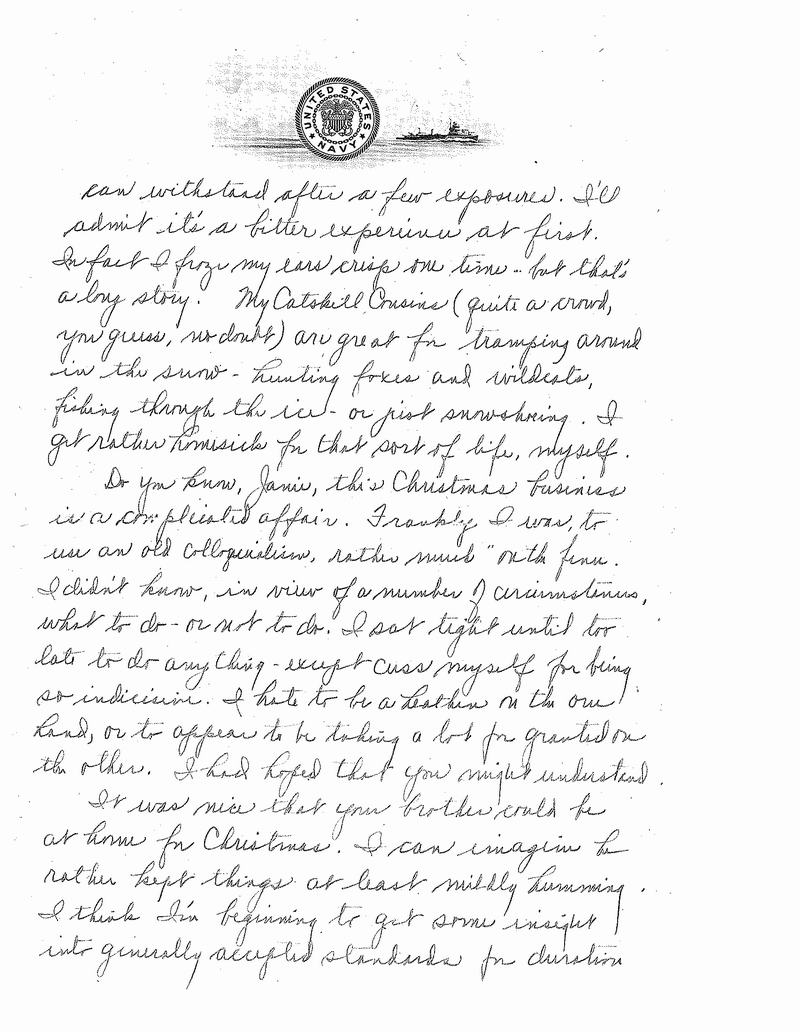 UNITED STATES NAVY
can withstand after a few exposures. I'll
admit it's a bitter experience at first.
In fact I froze my ears crisp one time - but that's
a long story. My Catskill Cousins (quite a crowd,
you guess, no doubt) are great for tramping around
in the snow - hunting foxes and wildcats,
fishing through the ice - or just snowshoeing. I
get rather homesick for that sort of life, myself.
Do you know, Janie, this Christmas business
is a complicated affair. Frankly I was, to
use an old colloquialism, rather much "on the fence.
I didn't know, in view of a number of circumstances,
what to do - or not to do. I sat tight until too
late to do anything - except cuss myself for being
so indicisive. I hate to be a heathen on the one
hand, or to appear to be taking a lot for granted on
the other. I had hoped that you might understand.
It was nice that your brother could be
at home for Christmas. I can imagine he
rather kept things at least mildly humming.
I think I'm beginning to get some insight
into generally accepted standards for duration